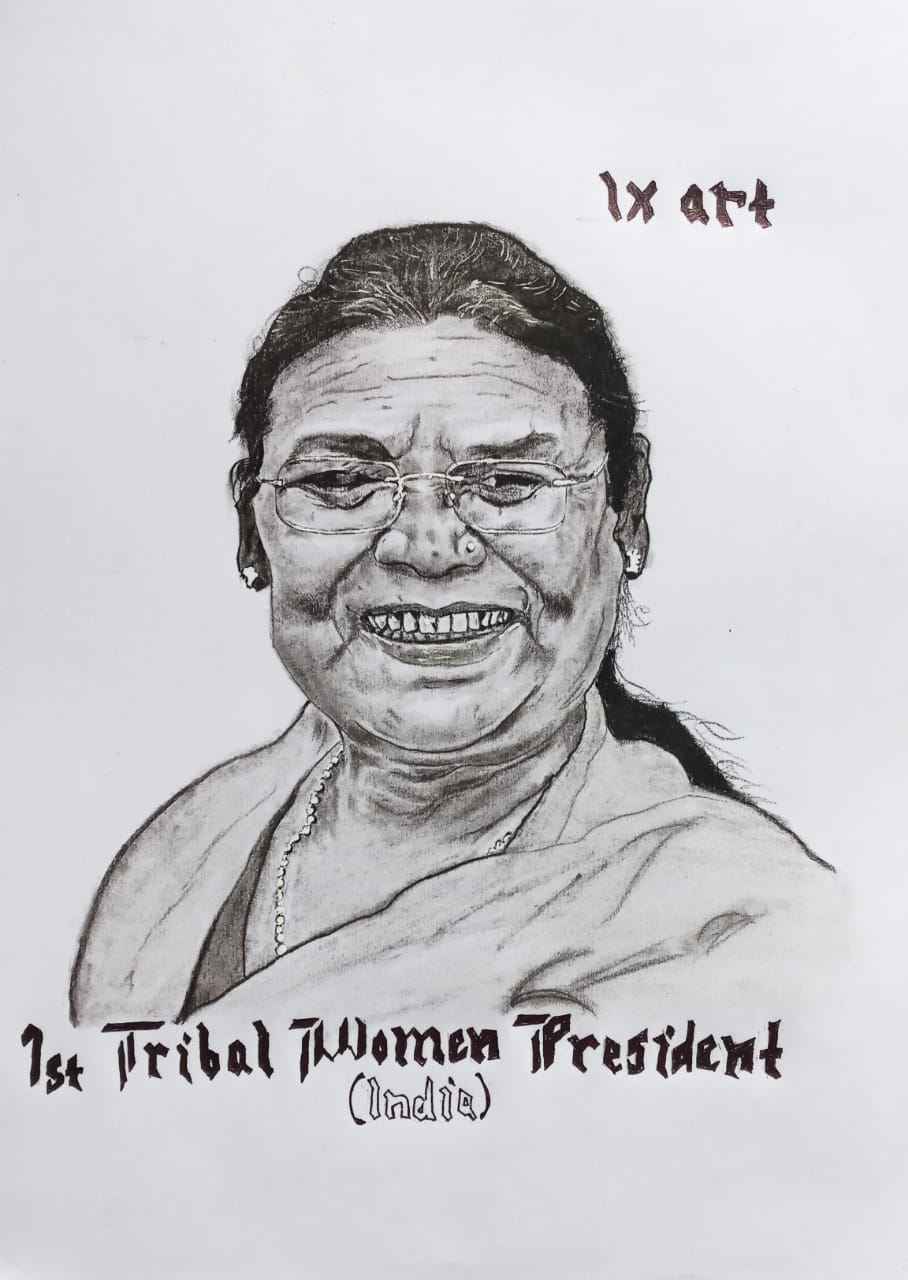 1x art
1st Tribal Women President
(India)